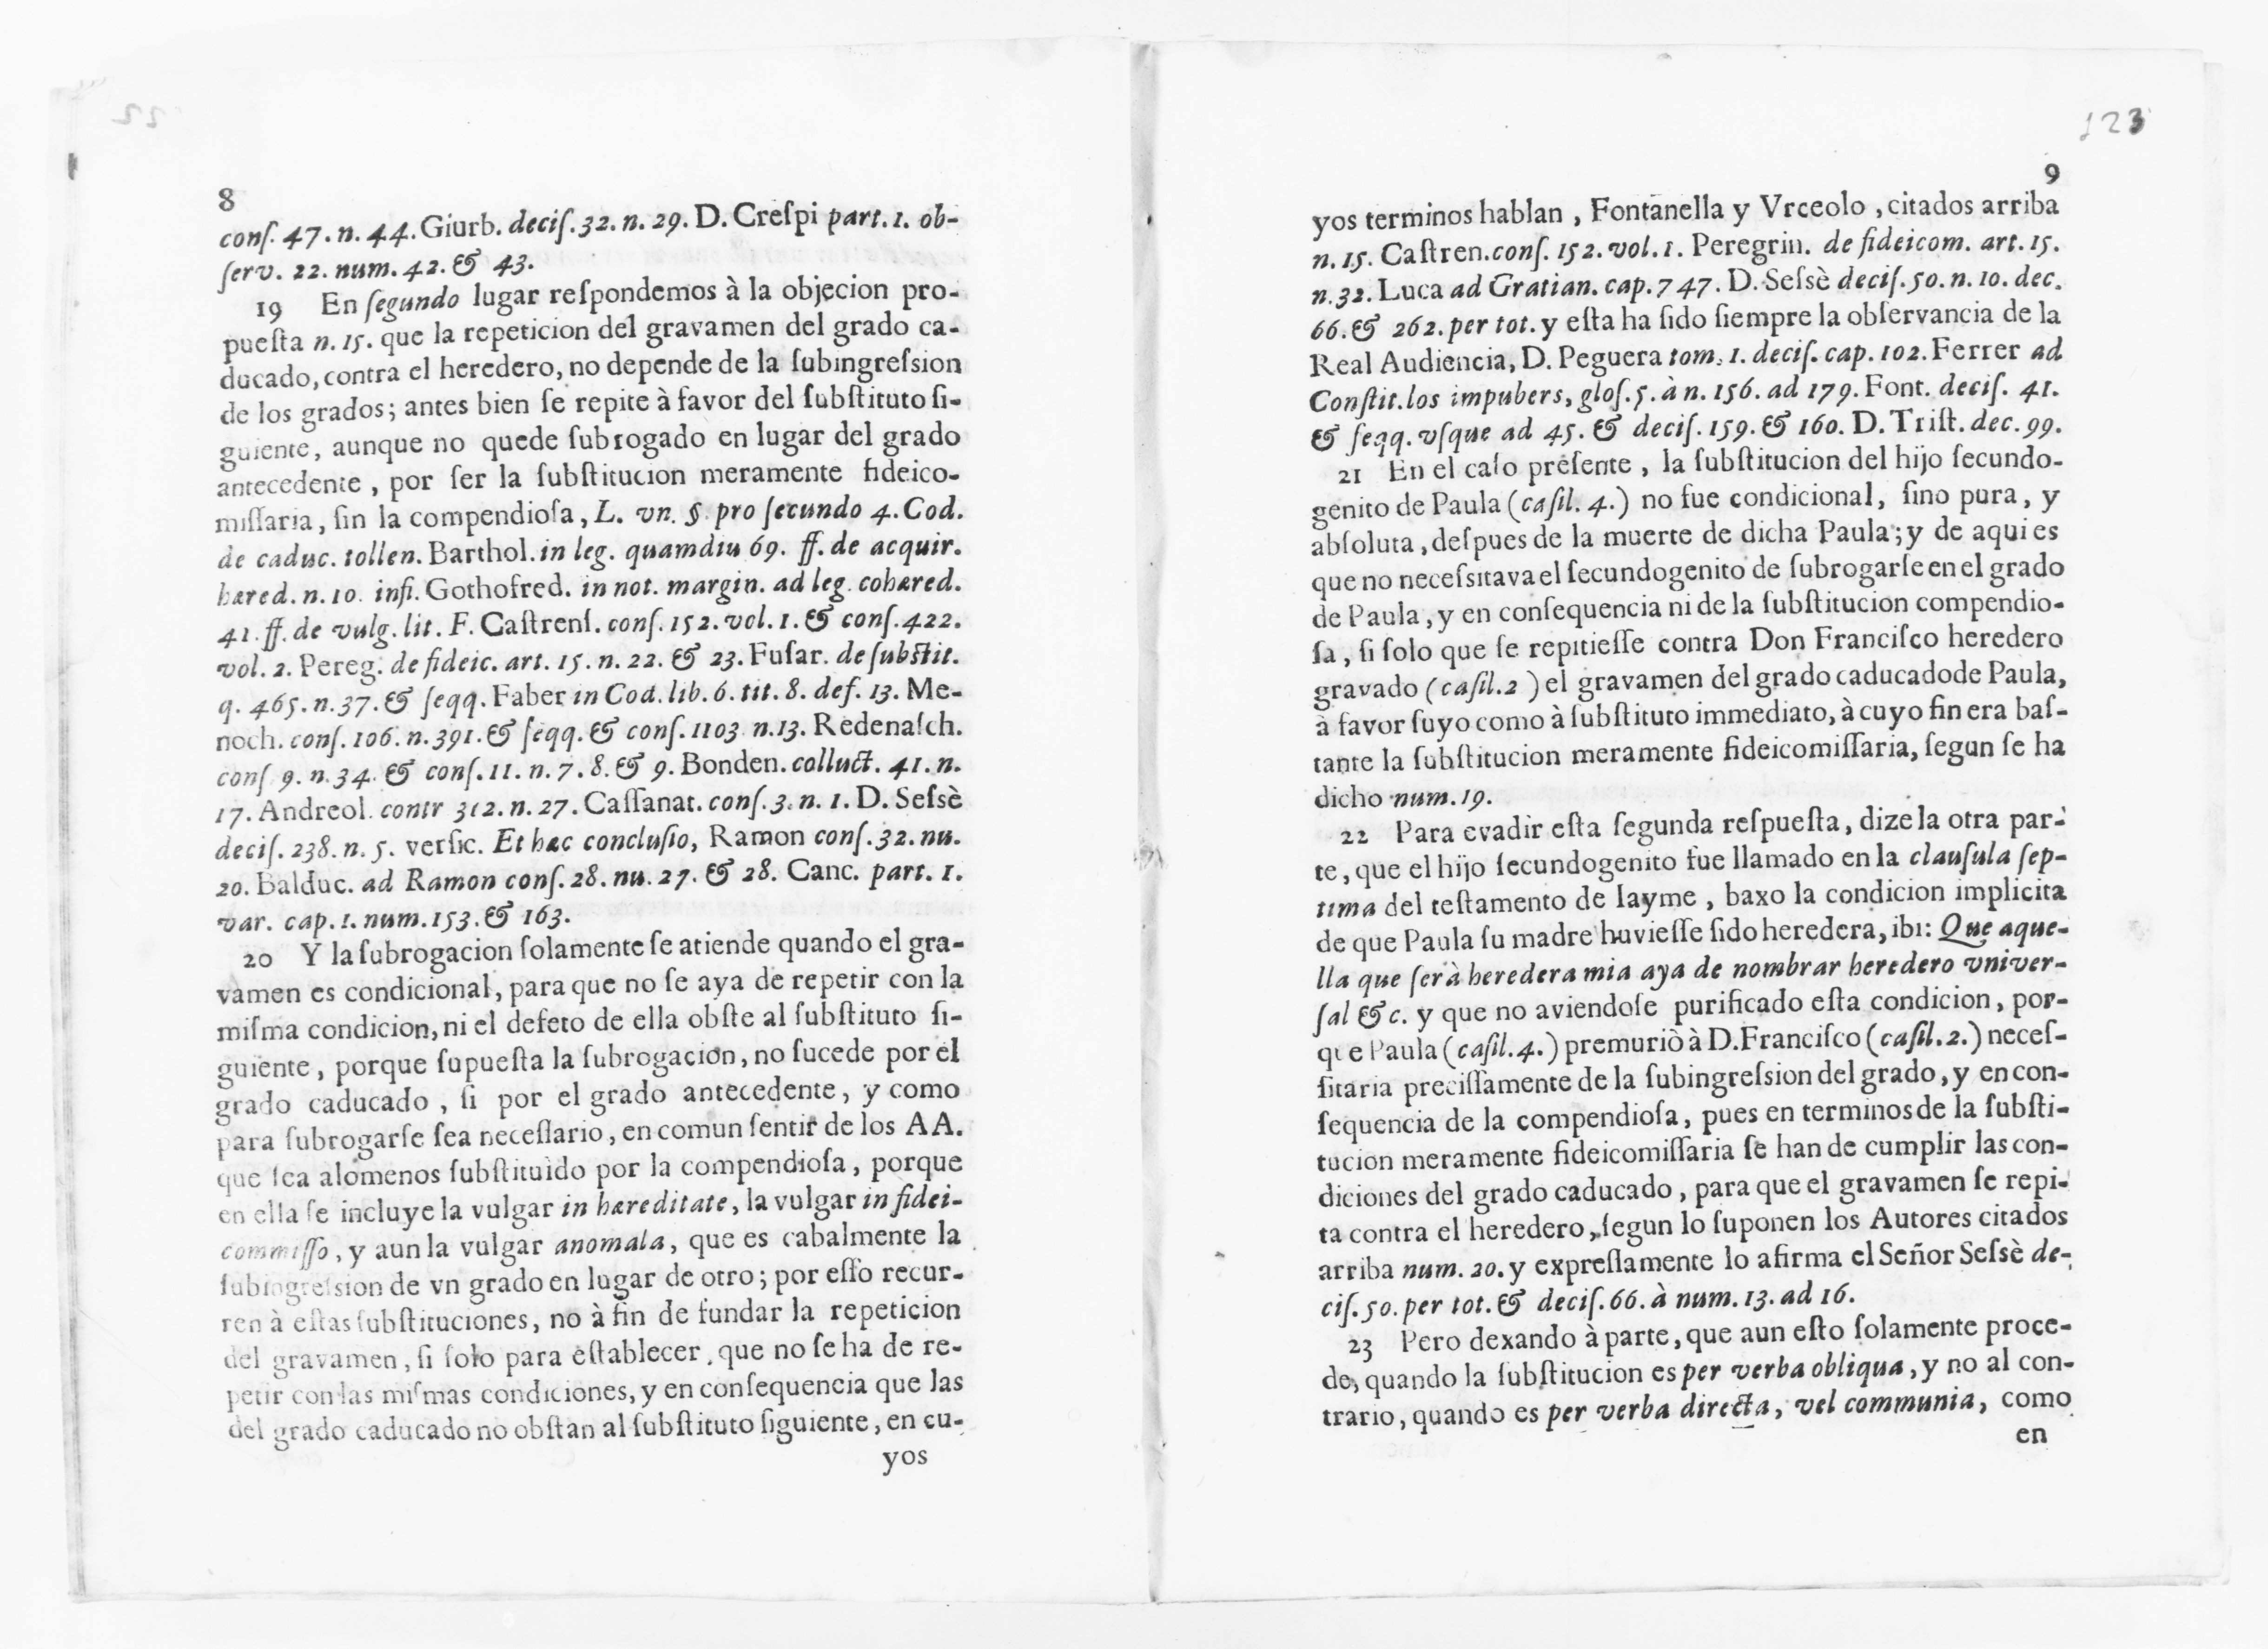 8
conſ. 47. n. 44. Giurb. deciſ. 32. n. 29. D. Creſpi part. 1. ob-
ſerv. 22. num. 42. & 43.
19 En ſegundo lugar reſpondemos à la objecion pro-
pueſta n. 15. que la repeticion del gravamen del grado ca-
ducado, contra el heredero, no depende de la ſubingreſsion
de los grados; antes bien ſe repite à favor del ſubſtituto ſi-
guiente, aunque no quede ſubrogado en lugar del grado
antecedente, por ſer la ſubſtitucion meramente fideico-
miſſaria, ſin la compendioſa, L. vn. §. pro ſecundo 4. Cod.
de caduc. tollen. Barthol. in leg. quamdiu 69. ff. de acquir.
hæred. n. 10. infi. Gothofred. in not. margin. ad leg. cohæred.
41. ff. de vulg. lit. F. Caſtrenſ. conſ. 152. vol. 1. & conſ. 422.
vol. 2. Pereg. de fideic. art. 15. n. 22. & 23. Fuſar. de ſubſtit.
q. 465. n. 37. & ſeqq. Faber in Cod. lib. 6. tit. 8. def. 13. Me-
noch. conſ. 106. n. 391. & ſeqq. & conſ. 1103. n. 13. Redenaſch.
conſ. 9. n. 34. & conſ. 11. n. 7. 8. & 9. Bonden. colluct. 41. n.
17. Andreol. contr. 312. n. 27. Caſſanat. conſ. 3. n. 1. D. Seſsè
deciſ. 238. n. 5. verſic. Et hæc concluſio, Ramon conſ. 32. nu.
20. Balduc. ad Ramon conſ. 28. nu. 27. & 28. Canc. part. 1.
var. cap. 1. num. 153. & 163.
20 Y la ſubrogacion ſolamente ſe atiende quando el gra-
vamen es condicional, para que no ſe aya de repetir con la
miſma condicion, ni el defeto de ella obſte al ſubſtituto ſi-
guiente, porque ſupueſta la ſubrogacion, no ſucede por el
grado caducado, ſi por el grado antecedente, y como
para ſubrogarſe ſea neceſſario, en comun ſentir de los AA.
que ſea alomenos ſubſtituìdo por la compendioſa, porque
en ella ſe incluye la vulgar in hæreditate, la vulgar in fidei-
commiſſo, y aun la vulgar anomala, que es cabalmente la
ſubingreſsion de vn grado en lugar de otro; por eſſo recur-
ren à eſtas ſubſtituciones, no à fin de fundar la repeticion
del gravamen, ſi ſolo para eſtablecer, que no ſe ha de re-
petir con las miſmas condiciones, y en conſequencia que las
del grado caducado no obſtan al ſubſtituto ſiguiente, en cu-
yos
123
9
yos terminos hablan, Fontanella y Vrceolo, citados arriba
n. 15. Caſtren. conſ. 152. vol. 1. Peregrin. de fideicom. art. 15.
n. 32. Luca ad Gratian. cap. 747. D. Seſsè deciſ. 50. n. 10. dec.
66. & 262. per tot. y eſta ha ſido ſiempre la obſervancia de la
Real Audiencia, D. Peguera tom. 1. deciſ. cap. 102. Ferrer ad
Conſtit. los impubers, gloſ. 5. à n. 156. ad 179. Font. deciſ. 41.
& ſeqq. vſque ad 45. & deciſ. 159. & 160. D. Triſt. dec. 99.
21 En el caſo preſente, la ſubſtitucion del hijo ſecundo-
genito de Paula (caſil. 4.) no fue condicional, ſino pura, y
abſoluta, deſpues de la muerte de dicha Paula; y de aqui es
que no neceſsitava el ſecundogenito de ſubrogarſe en el grado
de Paula, y en conſequencia ni de la ſubſtitucion compendio-
ſa, ſi ſolo que ſe repitieſſe contra Don Franciſco heredero
gravado (caſil. 2) el gravamen del grado caducado de Paula,
à favor ſuyo como à ſubſtituto immediato, à cuyo fin era baſ-
tante la ſubſtitucion meramente fideicomiſſaria, ſegun ſe ha
dicho num. 19.
22 Para evadir eſta ſegunda reſpueſta, dize la otra par-
te, que el hijo ſecundogenito fue llamado en la clauſula ſep-
tima del teſtamento de Iayme, baxo la condicion implicita
de que Paula ſu madre huvieſſe ſido heredera, ibi: Que aque-
lla que ſerà heredera mia aya de nombrar heredero vniver-
ſal &c. y que no aviendoſe purificado eſta condicion, por-
que Paula (caſil. 4.) premuriò à D. Franciſco (caſil. 2.) neceſ-
ſitaria preciſſamente de la ſubingreſsion del grado, y en con-
ſequencia de la compendioſa, pues en terminos de la ſubſti-
tucion meramente fideicomiſſaria ſe han de cumplir las con-
diciones del grado caducado, para que el gravamen ſe repi-
ta contra el heredero, ſegun lo ſuponen los Autores citados
arriba num. 20. y expreſſamente lo afirma el Señor Seſsè de-
ciſ. 50. per tot. & deciſ. 66. à num. 13. ad 16.
23 Pero dexando à parte, que aun eſto ſolamente proce-
de, quando la ſubſtitucion es per verba obliqua, y no al con-
trario, quando es per verba directa, vel communia, como
en